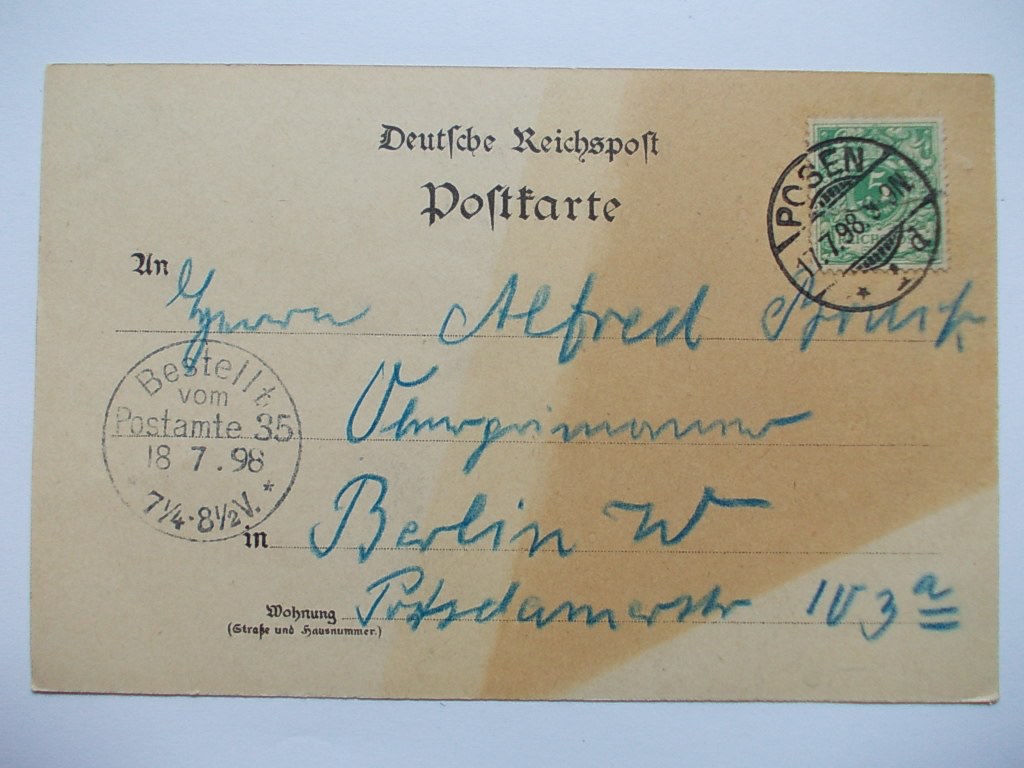 Deutsche Reichspost
Postkarte
POSEN
17.7.98. 8-9N.
5
An Herrn Alfred
Bestellt
vom
Postamte 35
18 7.98
7¼-8½V.
Oberprimaner
in Berlin W
Wohnung Potsdamerstr 103 a
(Straße und Hausnummer.)